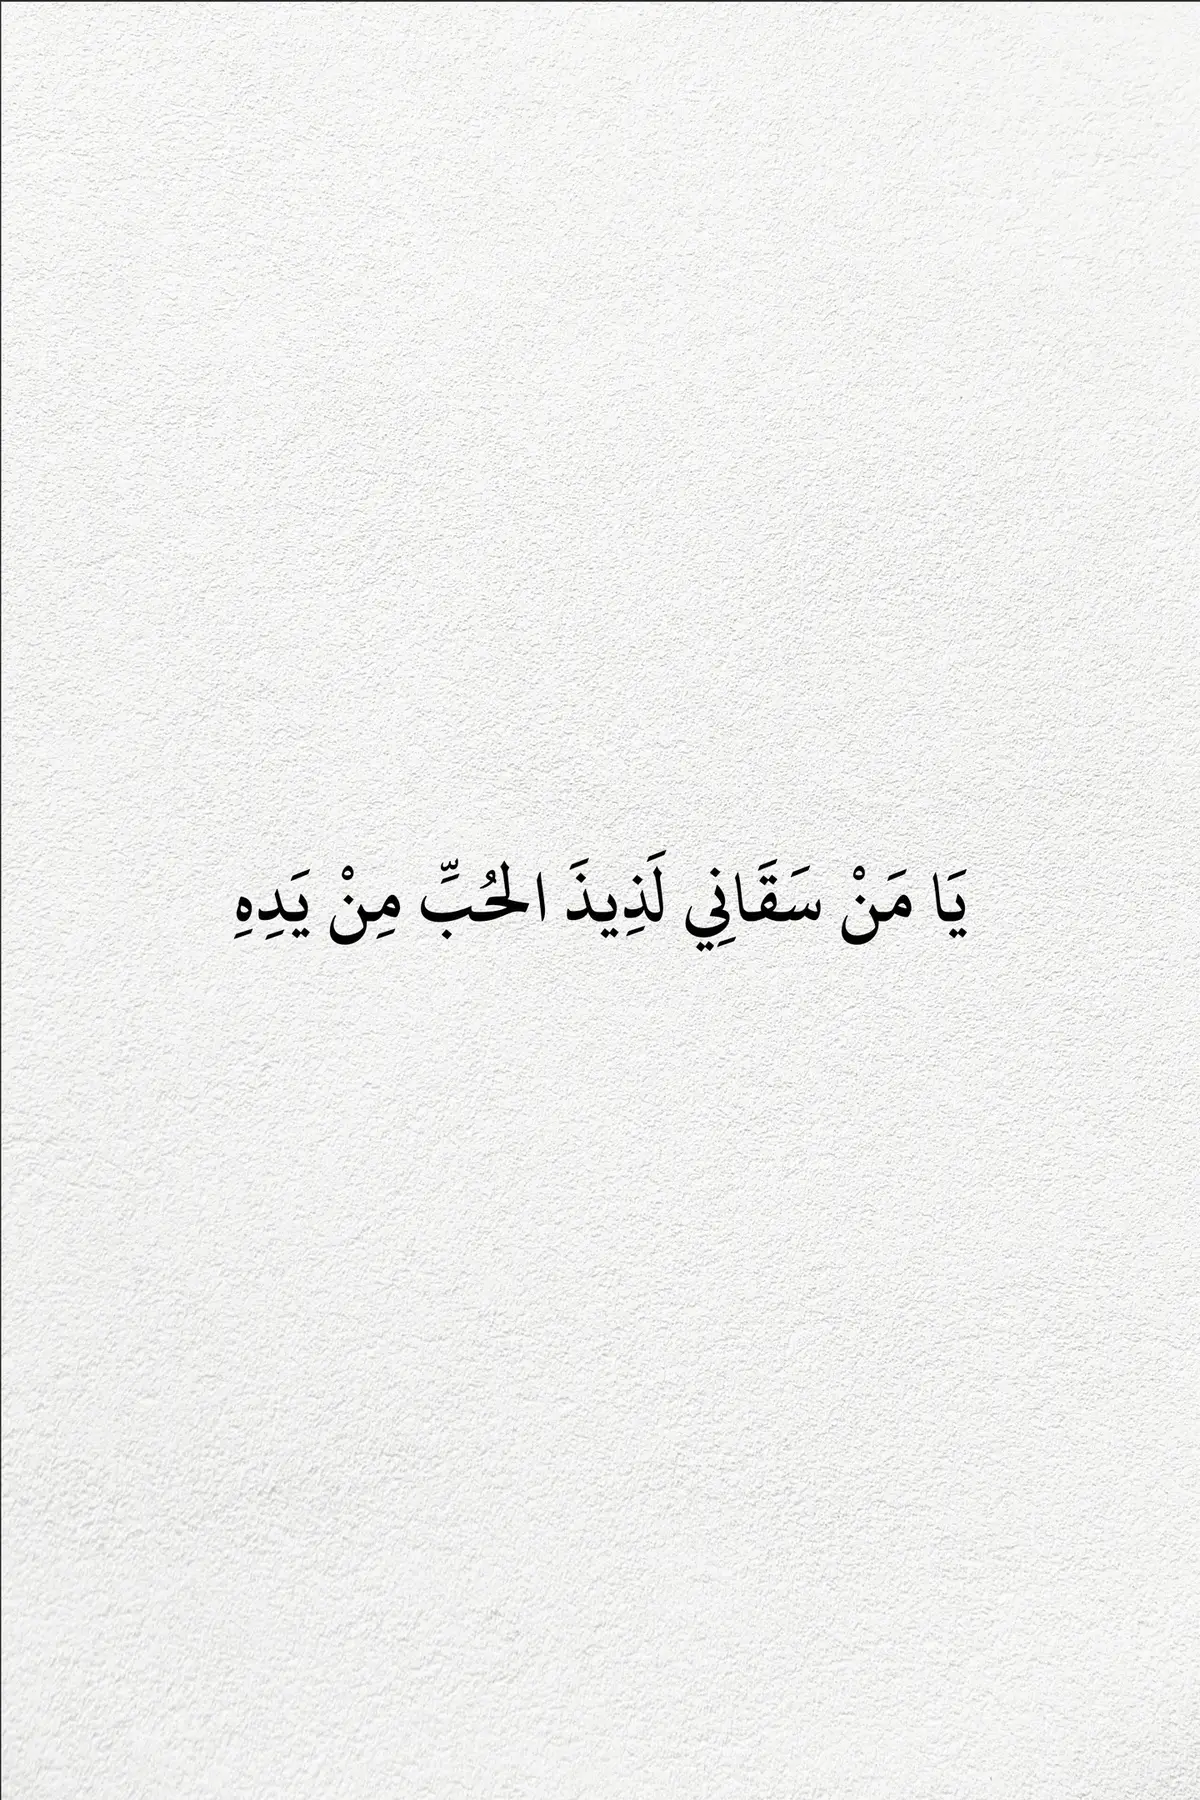 يَا مَنْ سَقَانِي لَذِيذَ الحُبِّ مِنْ يَدِهِ